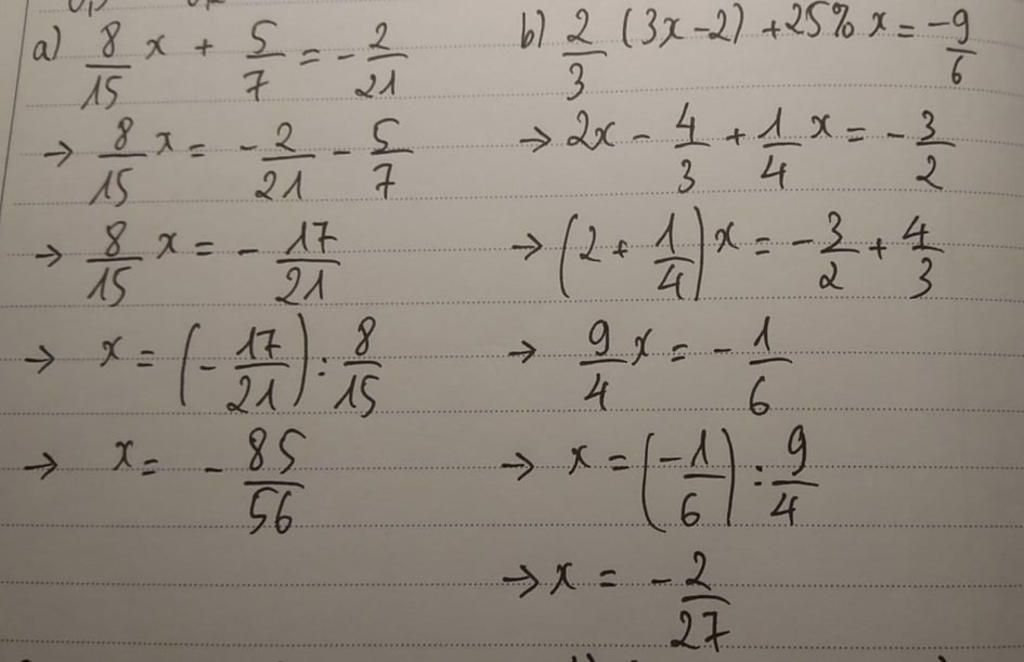 a) 8/15 x + 5/7 = - 2/21
→ 8/15 x = - 2/21 - 5/7
→ 8/15 x = - 17/21
→ x = (- 17/21) : 8/15
→ x = - 85/56
b) 2/3 (3x - 2) + 25% x = -9/6
→ 2x - 4/3 + 1/4 x = - 3/2
→ (2 + 1/4) x = - 3/2 + 4/3
→ 9/4 x = - 1/6
→ x = (-1/6) : 9/4
→ x = - 2/27